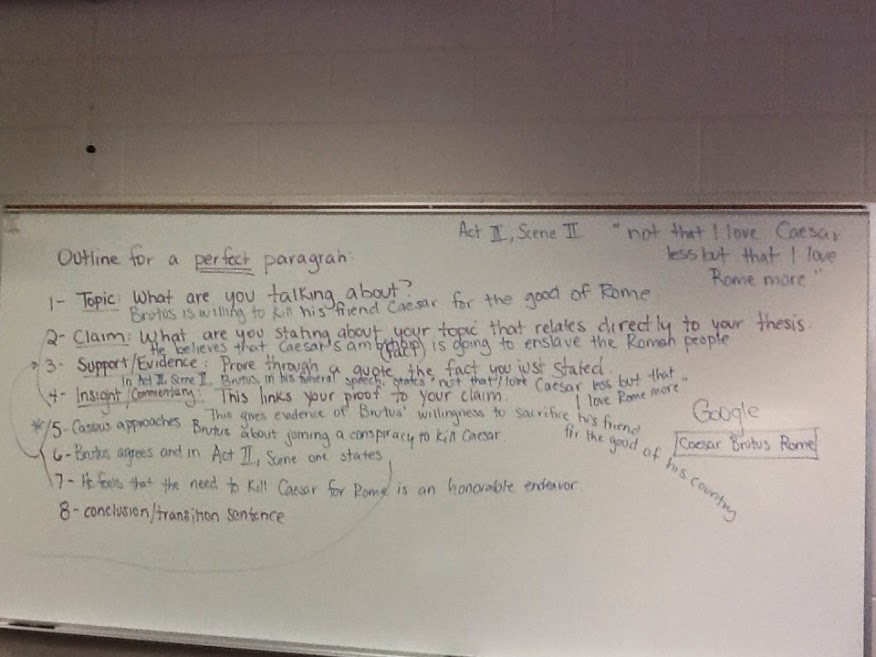 Act II, Scene II "not that I love Caesar
less but that I love
Rome more"
Outline for a perfect paragrah:
1- Topic: What are you talking about?
Brutus is willing to kill his friend Caesar for the good of Rome
2- Claim: What are you stating about your topic that relates directly to your thesis.
He believes that Caesar's ambition is going to enslave the Roman people
(fact)
3- Support/Evidence: Prove through a quote the fact you just stated.
In Act II, Scene II, Brutus, in his funeral speech, states "not that I love Caesar less but that
I love Rome more"
4- Insight/Commentary: This links your proof to your claim.
This gives evidence of Brutus' willingness to sacrifice his friend
for the good of his country
*5- Cassius approaches Brutus about joining a conspiracy to kill Caesar.
6- Brutus agrees and in Act II, Scene one states
7- He feels that the need to kill Caesar for Rome is an honorable endeavor.
8- conclusion/transition sentence
Google
Caesar Brutus Rome